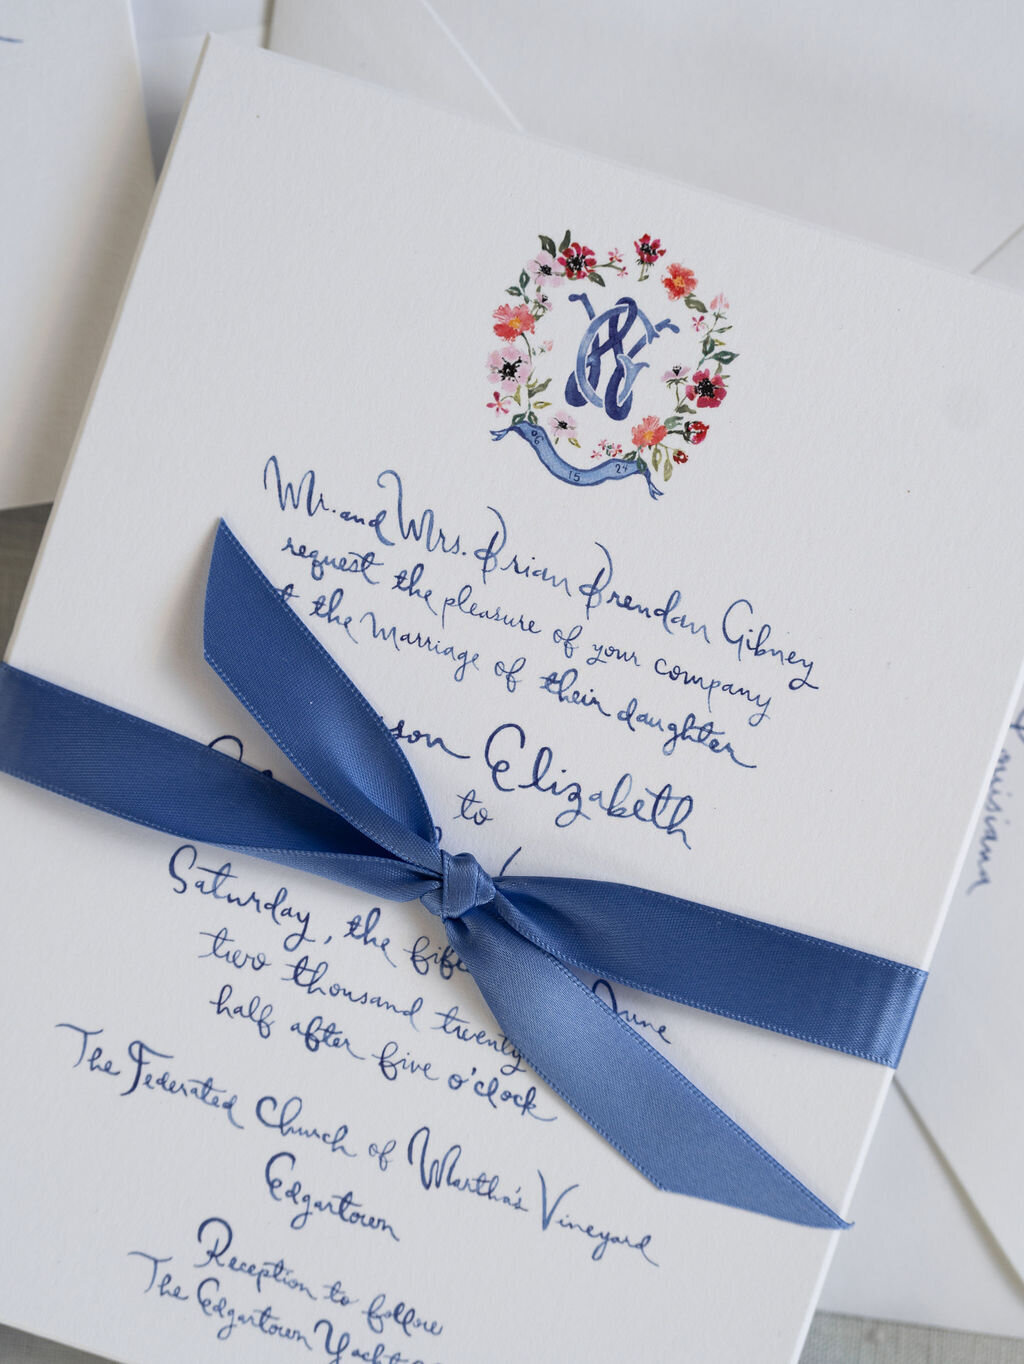 06 15 24
Mr. and Mrs. Brian Brendan Gibney
request the pleasure of your company
the Marriage of their daughter
Elizabeth
to
Saturday, the June
two thousand twenty
half after five o'clock
The Federated Church of Martha's Vineyard
Edgartown
Reception to follow
The Edgartown Yacht